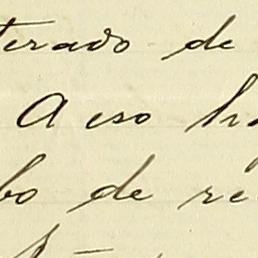 terado de
A eso h
bo de re